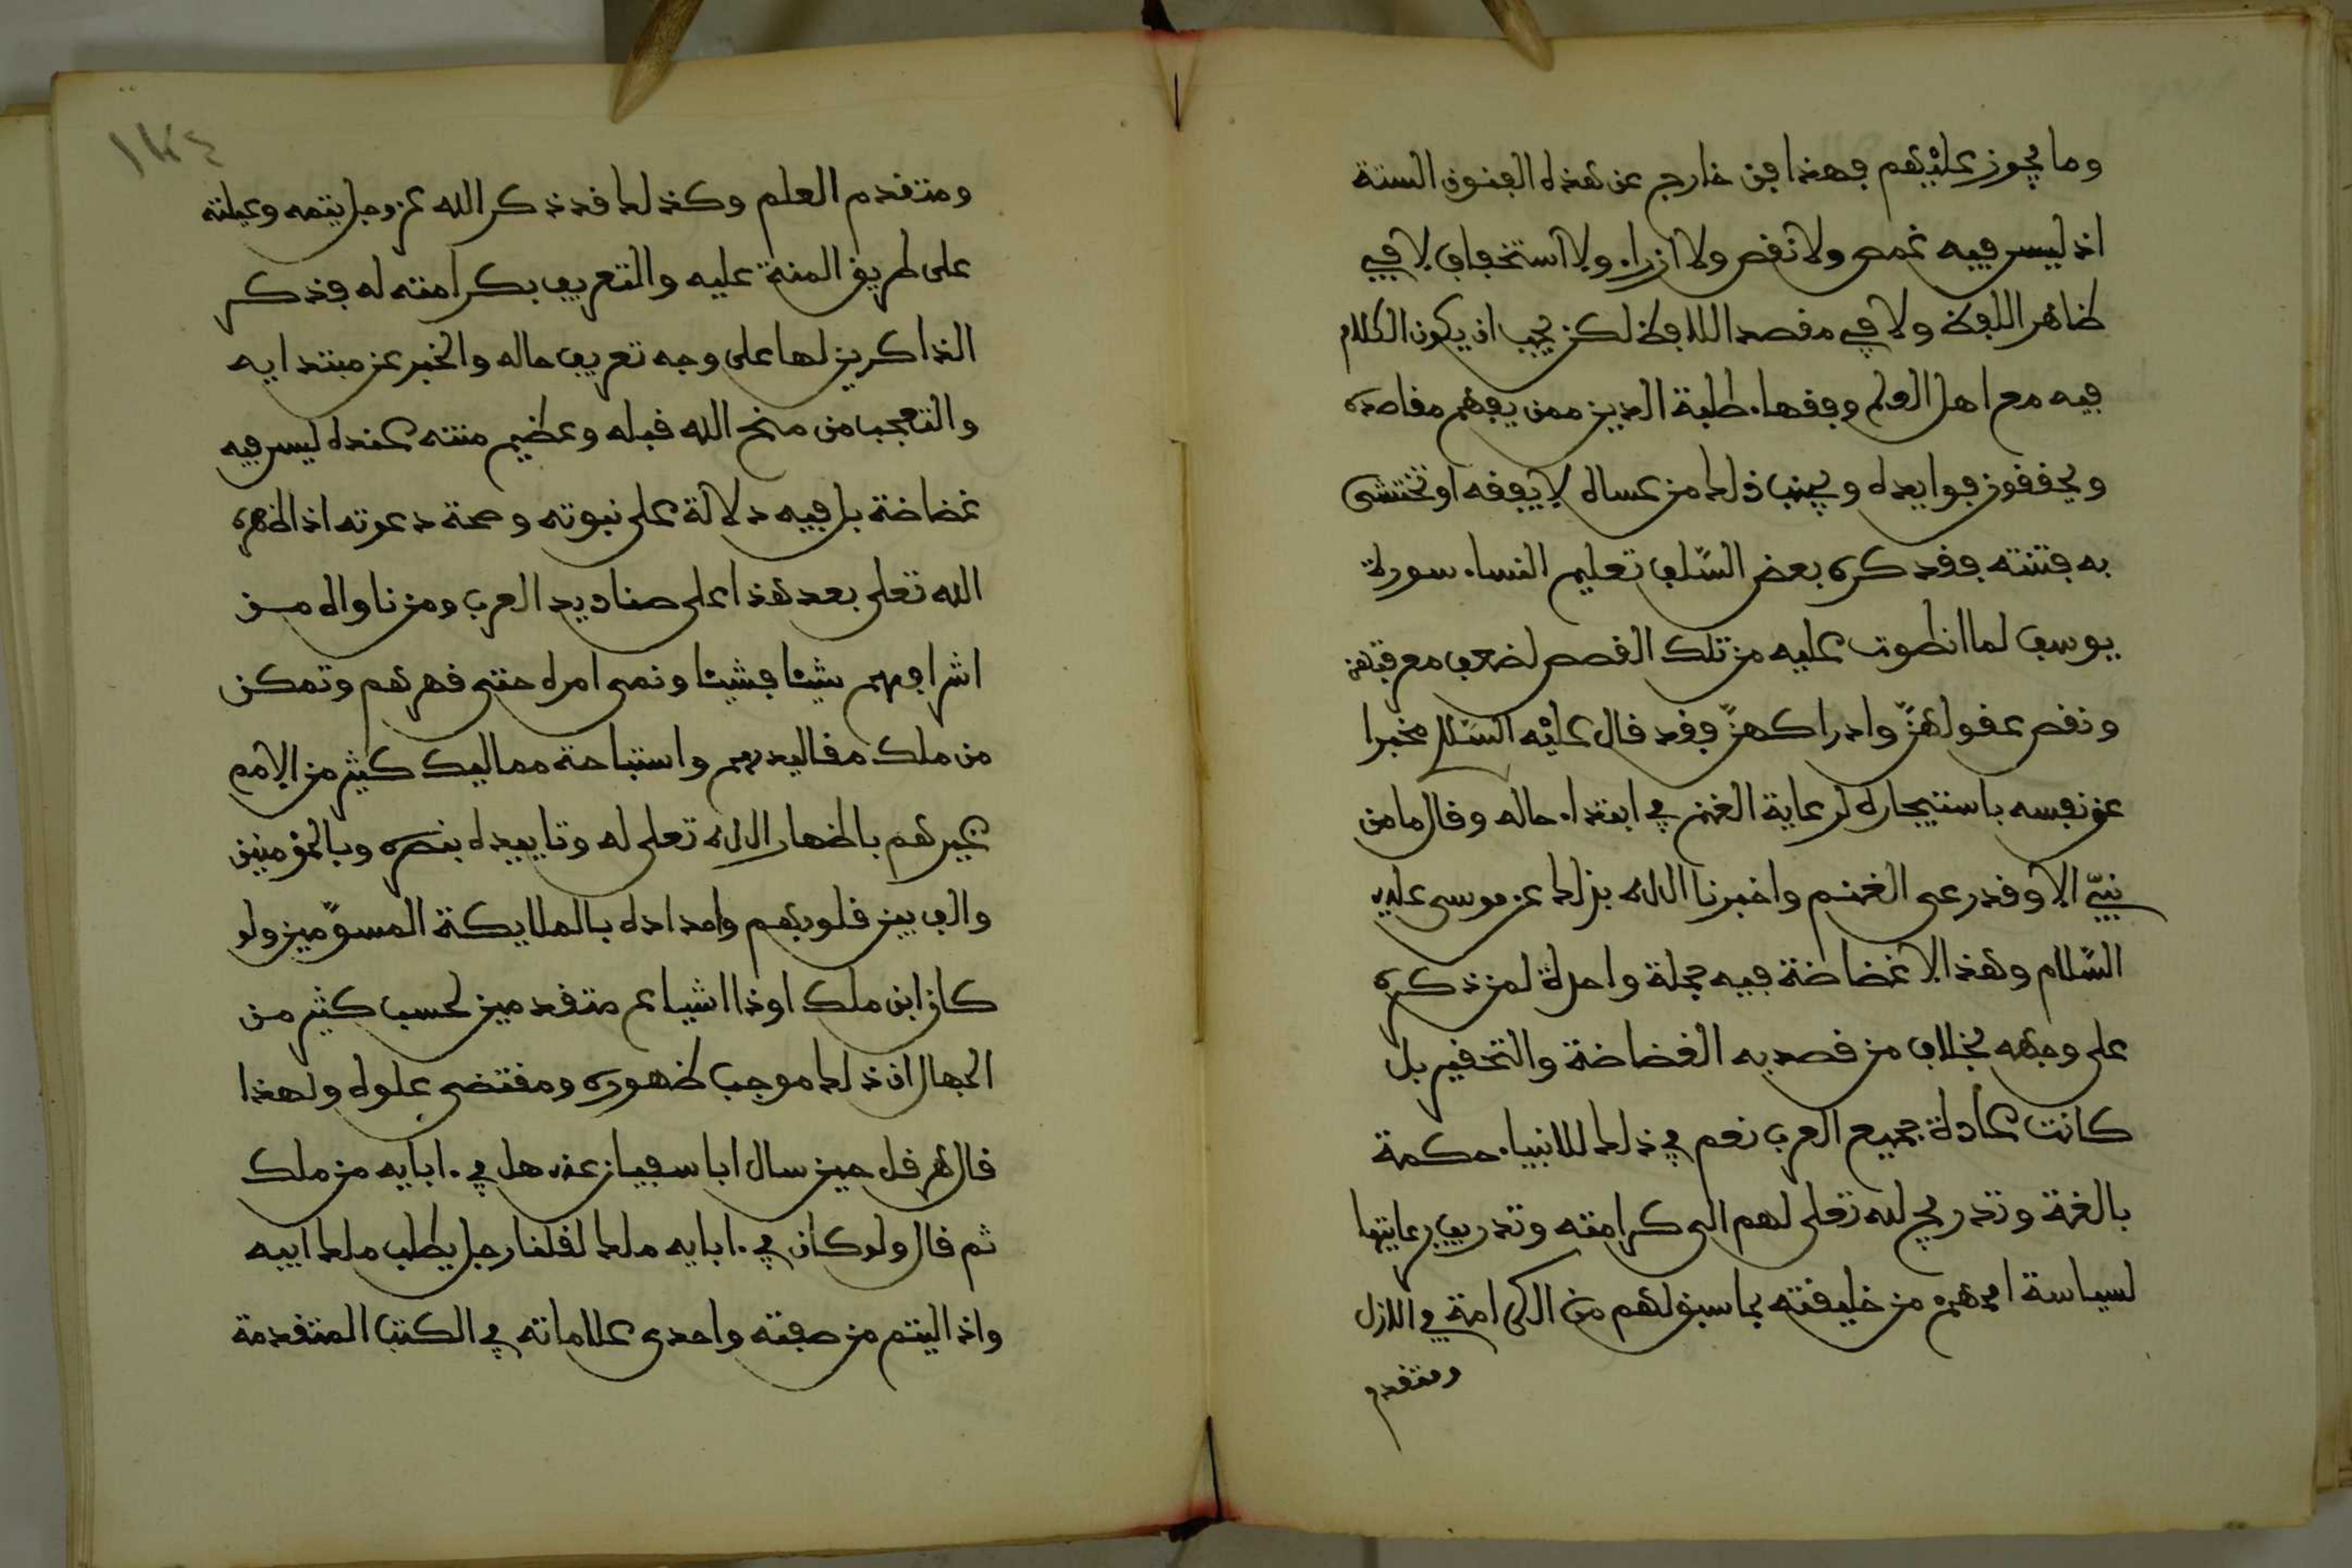 وما يجوز عليهم فهذا فن خارج عن هذه الفنون الستة
اذ ليس فيه غمص ولا نقص ولا ازراء ولا استخفاف لا في
ظاهر اللفظ ولا في مقصد اللافظ لكن يجب ان يكون الكلام
فيه مع اهل العلم وفقهاء طلبة الدين ممن يفهم مقاصده
ويحققون فوايده ويجنب ذلك من عساه لا يفقه او تختشى
به فتنته فقد كره بعض السّلف تعليم النساء سورة
يوسف لما انطوت عليه من تلك القصص لضعف معرفتهن
ونقص عقولهنّ وادراكهنّ فقد قال عليه السّلام مخبرا
عن نفسه باستيجاره لرعاية الغنم في ابتداء حاله وقال ما من
نبيّ الا وقد رعى الغنم واخبرنا الله بذلك عن موسى عليه
السّلام وهذا لا غضاضة فيه جملة واحدة لمن ذكره
على وجهه بخلاف من قصد به الغضاضة والتحقير بل
كانت عادة جميع العرب نعم في ذلك للانبياء حكمة
بالغة وتدريج لله تعلى لهم الى كرامته وتدريب برعايتها
لسياسة اممهم من خليقته بما سبق لهم من الكرامة في الازل
ومتقدم
١٢٤
ومتقدم العلم وكذلك قد ذكر الله عز وجل يتمه وعيلته
على طريق المنة عليه والتعريف بكرامته له فذكر
الذاكرين لها على وجه تعريف حاله والخبر عن مبتدايه
والتعجب من منح الله قبله وعظيم منته عنده ليس فيه
غضاضة بل فيه دلالة على نبوته وصحة دعوته اذ اظهره
الله تعلى بعد هذا على صناديد العرب ومن ناواه مــن
اشرافهم شيئا فشيئا ونمى امره حتى قهرهم وتمكن
من ملك مقاليدهم واستباحة مماليك كثير من الامم
غيرهم باظهار الله تعلى له وتاييده بنصره وبالمؤمنين
والف بين قلوبهم وامداده بالملايكة المسوّمين ولو
كان ابن ملك او ذا اشياع متقدمين لحسب كثير من
الجهال ان ذلك موجب ظهوره ومقتضى علوه ولهذا
قال هرقل حين سال ابا سفيان عنه هل في ابايه من ملك
ثم قال ولو كان في ابايه ملك لقلنا رجل يطلب ملك ابيه
واذ اليتم من صفته واحدى علاماته في الكتب المتقدمة